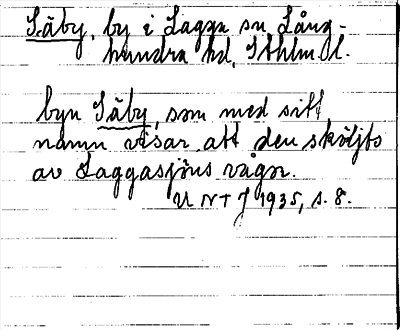 Säby, by i Lagga sn Lång-
hundra hd, Sthlm l.
byn Säby, som med sitt
namn visar att den sköljts
av Laggasjöns vågor.
UNT J 1935, s. 8.